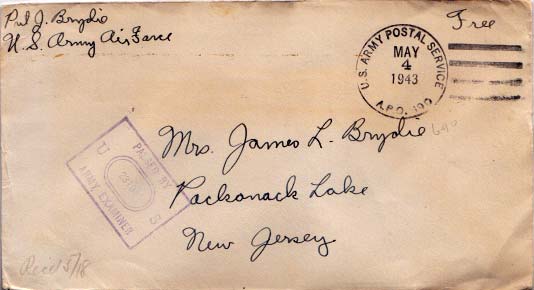 Pvt J. Brydie
U.S. Army Air Force
Free
U.S. ARMY POSTAL SERVICE
MAY
4
1943
A.P.O.
Mrs. James L. Brydie
Packanack Lake
New Jersey
PASSED BY
U S
ARMY EXAMINER
Rec'd 5/18